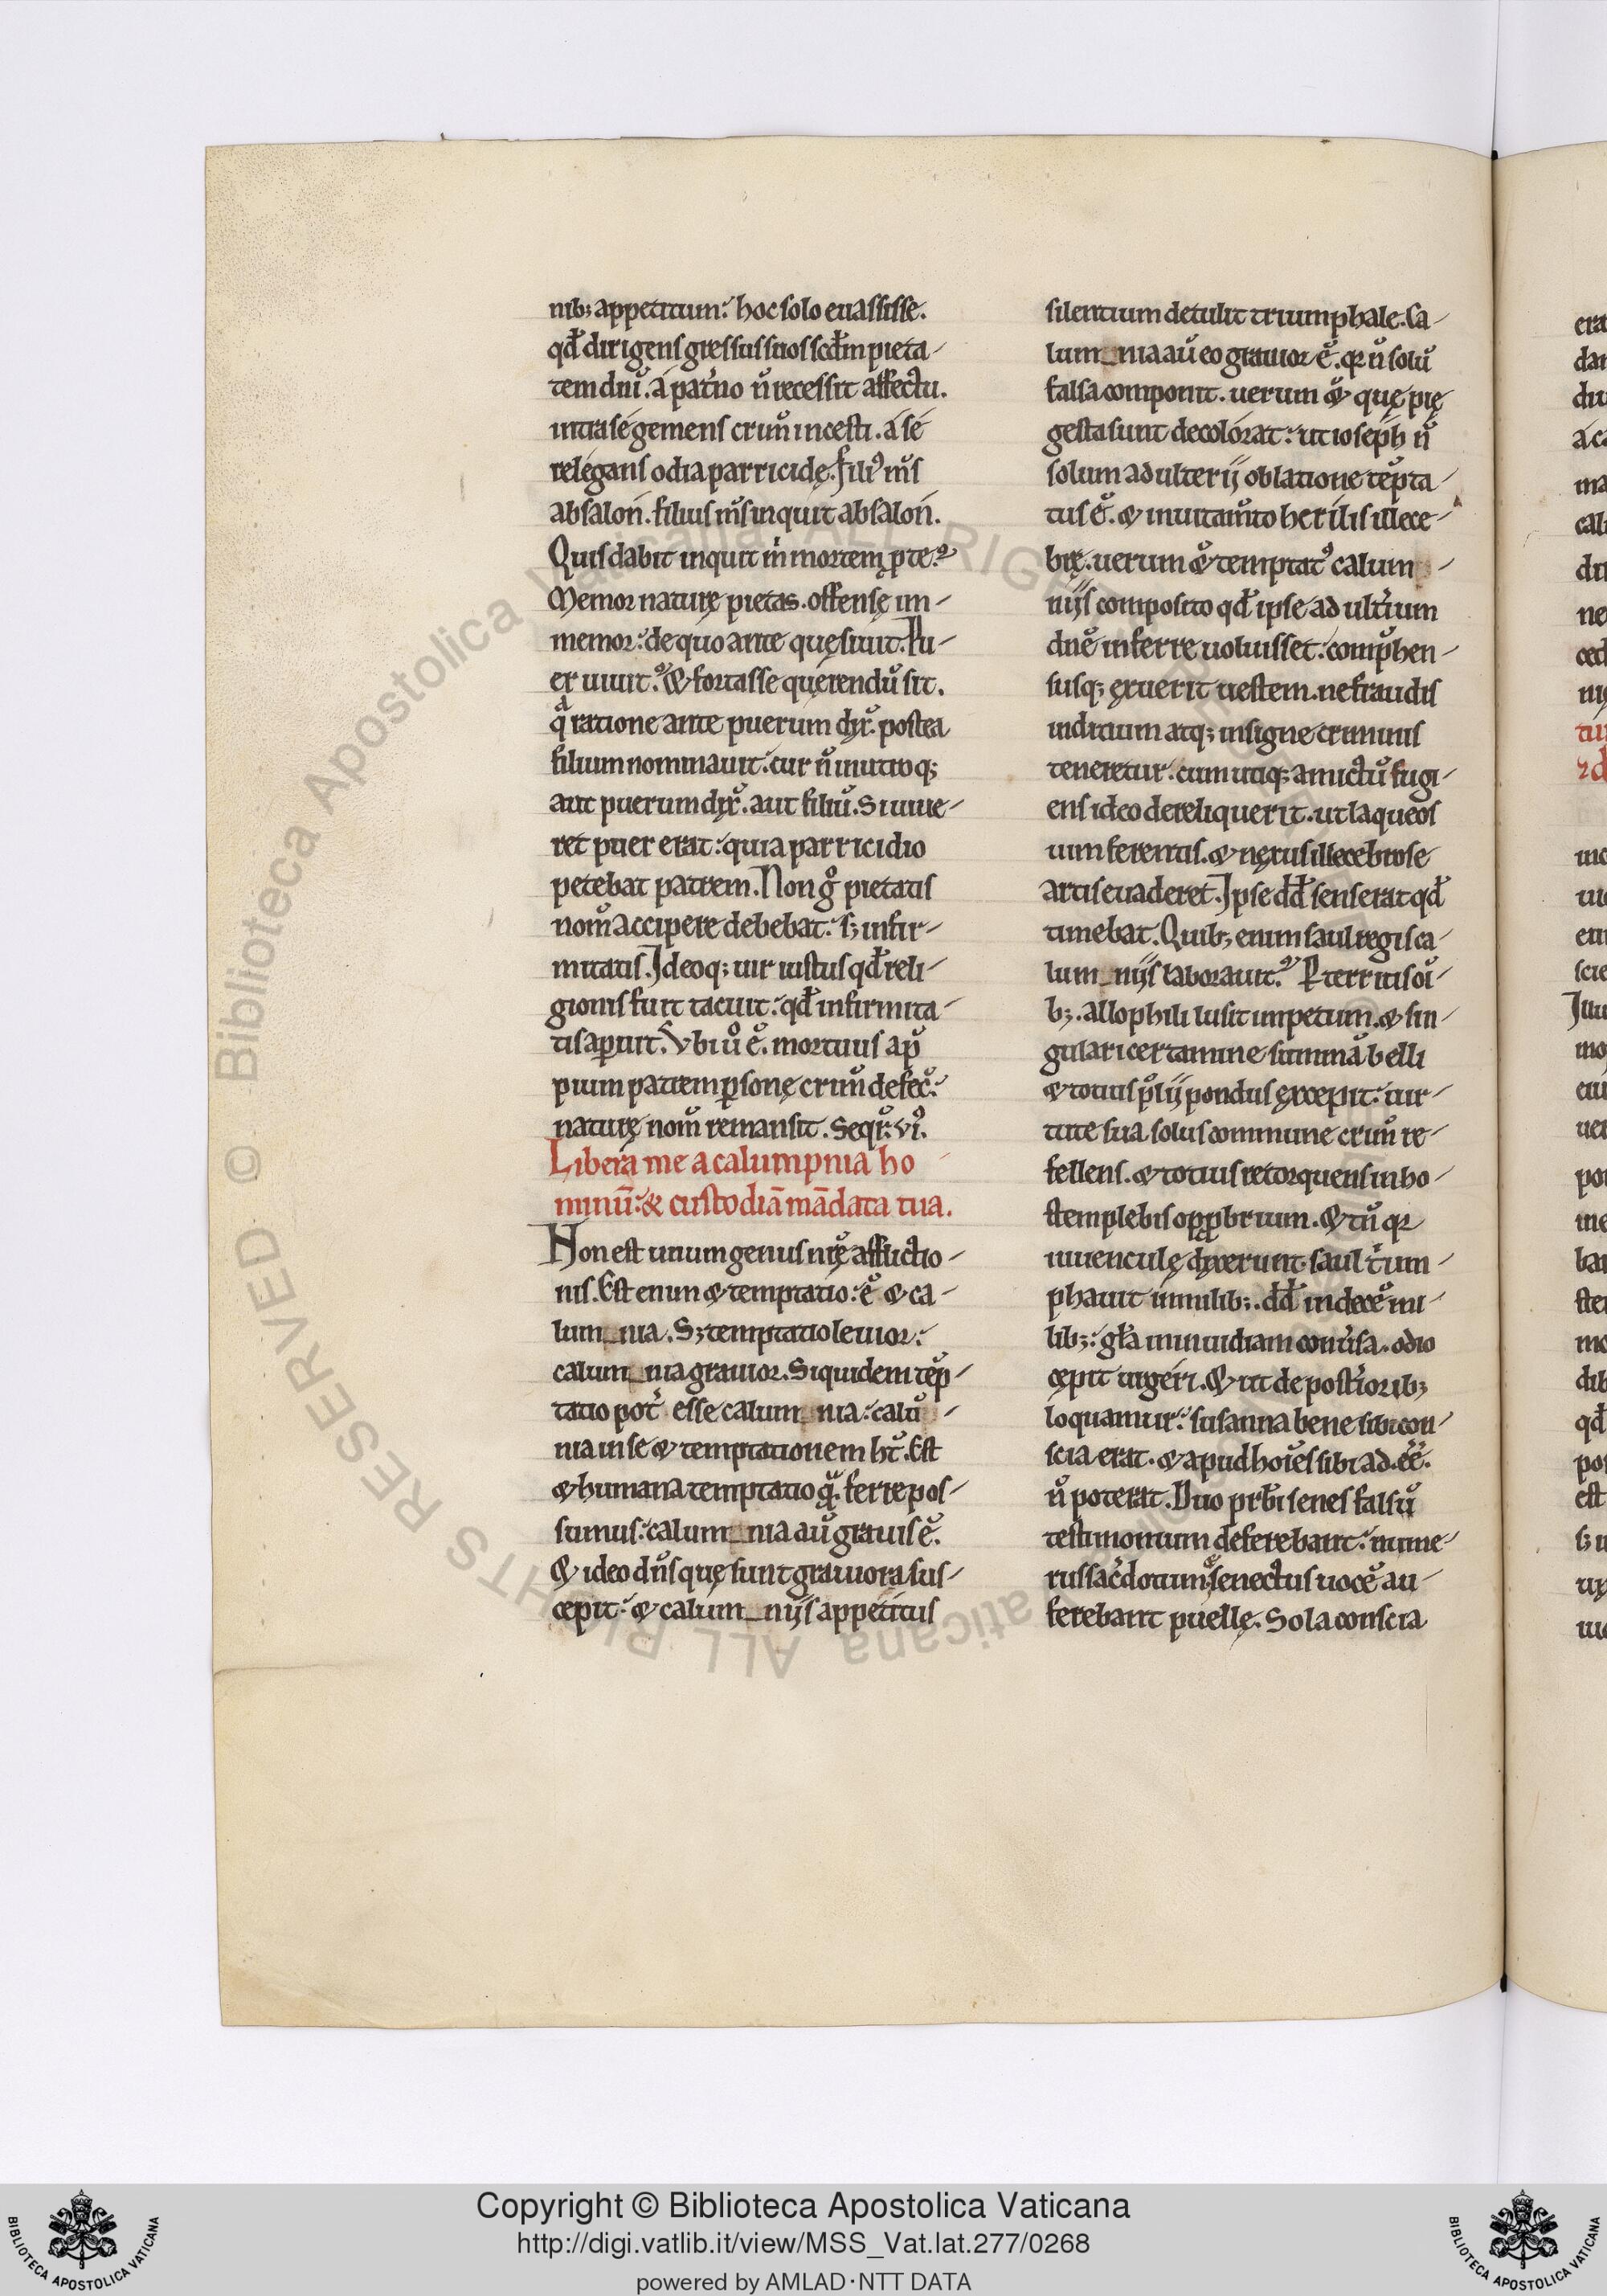 nib; appetitum: hoc solo euasisse.
qđ dirigens gressus suos scdm pieta-
tem diuī. á pat̉no n̄ recessit affectu.
intra sé gemens crim̄ incesti. á sé
relégans odia parricidę. Filiꝰ m̄s
absalón. filius m̄s inquit absalón.
Quis dabit inquit m̊ mortem p te?
Memor naturę pietas. offensę im-
memor: de quo ante quęsiuit. Pu-
er uiuit? & fortasse quęrendū sit.
qͣ ratione ante puerum dix̄. postea
filium nominauit. cur n̄ in utroq;
aut puerum dix̄. aut filiū. Si uiue-
ret puer erat: quia parricidio
petebat patrem. Non g̊ pietatis
nom̄ accipere debebat: s; infir-
mitatis. Ideoq; uir iustus qđ reli-
gionis fuit tacuit: qđ infirmita-
tis ap̱uit. Vbi ů ē. mortuus ap̄
pium patrem p̱sonę crim̄ defec̄:
naturę nom̄ remansit. Seqr̄: vı̊.
Libera me a calumpnia ho
minū: & custodiā mādata tua.
Non est unum genus nr̄ę afflictio-
nis. Est enim & temptatio: ē & ca-
lum_nia. S; temptatio leuior:
calum_nia grauior. Siquidem tēp-
tatio pot̉ esse calum_nia: calū-
nia in se & temptationem ht̄. Est
& humana temptatio qͣ. ferre pos-
sumus: calum_nia aū grauis ē.
& ideo dn̄s quę sunt grauiora sus-
cępit: & calum_nijs appetitus
silentium detulit triumphale. Ca-
lum_nia aū eo grauior ē. qr n̄ solū
falsa componit. uerum & quę pię
gesta sunt decolórat: ut ioséph n̄
solum adulterij oblatione tēpta-
tus ē. & inuitam̄to herilis illece-
brę. uerum & temptatꝰ calum-
nijs composito qđ ipse adult̉ium
dn̄ę inferre uoluisset: comp̄hen-
susq; exuerit uestem. ne fraudis
indicium atq; insigne criminis
teneretur. cum utiq; amictū fugi-
ens ideo dereliquerit. ut laqueos
uim ferentis. & nexus illecebrose
artis euaderet. Ipse dđ senserat qđ
timebat. Quib; enim saul regis ca-
lum_nijs laborauit? P̱territis oī-
b;. allophili lusit impetum. & sin-
gulari certamine summā belli
& totius p̄lij pondus excepit: uir-
tute sua solus commune crim̄ re-
fellens. & totius retorquens in ho-
stem plebis opp̱brium. & tū qr
iuuenculę dixerunt. saul t̉um-
phauit in milib;. dđ in decē mi-
lib;: gl̄a in inuidiam conu̓sa. odio
cępit urgéri. & ut de post̉iorib;
loquamur: susanna bene sibi con-
scia erat. & apud hoīes sibi ad. eē.
n̄ poterat. Duo prb̄i senes falsū
testimonium deferebant: nume-
rus sac̉dotum & senectus uocē au-
ferebant puellę. Sola conscia
Copyright © Biblioteca Apostolica Vaticana
http://digi.vatlib.it/view/MSS_Vat.lat.277/0268
powered by AMLAD·NTT DATA